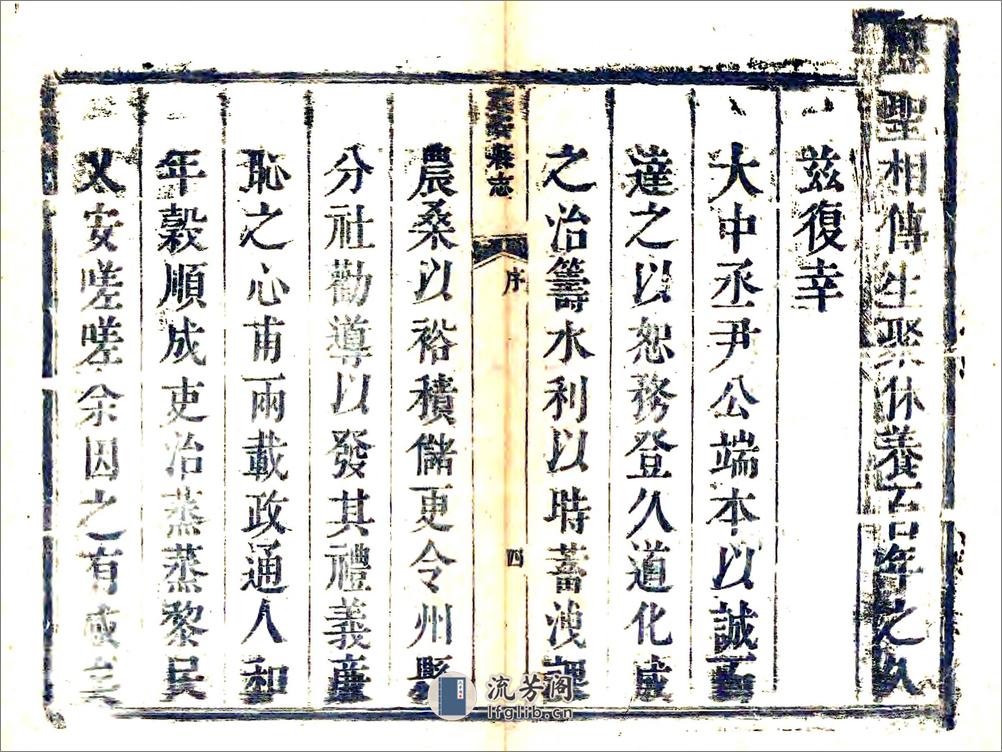 聖相傳生聚休養百年之久
茲復幸
大中丞尹公端本以誠而
達之以恕務登久道化成
之治籌水利以時蓄洩課
縣志
序
四
農桑以裕積儲更令州縣
分社勸導以發其禮義廉
恥之心甫兩載政通人和
年穀順成吏治蒸蒸黎民
乂安嗟嗟余因之有感
流芳阁
lfglib.cn